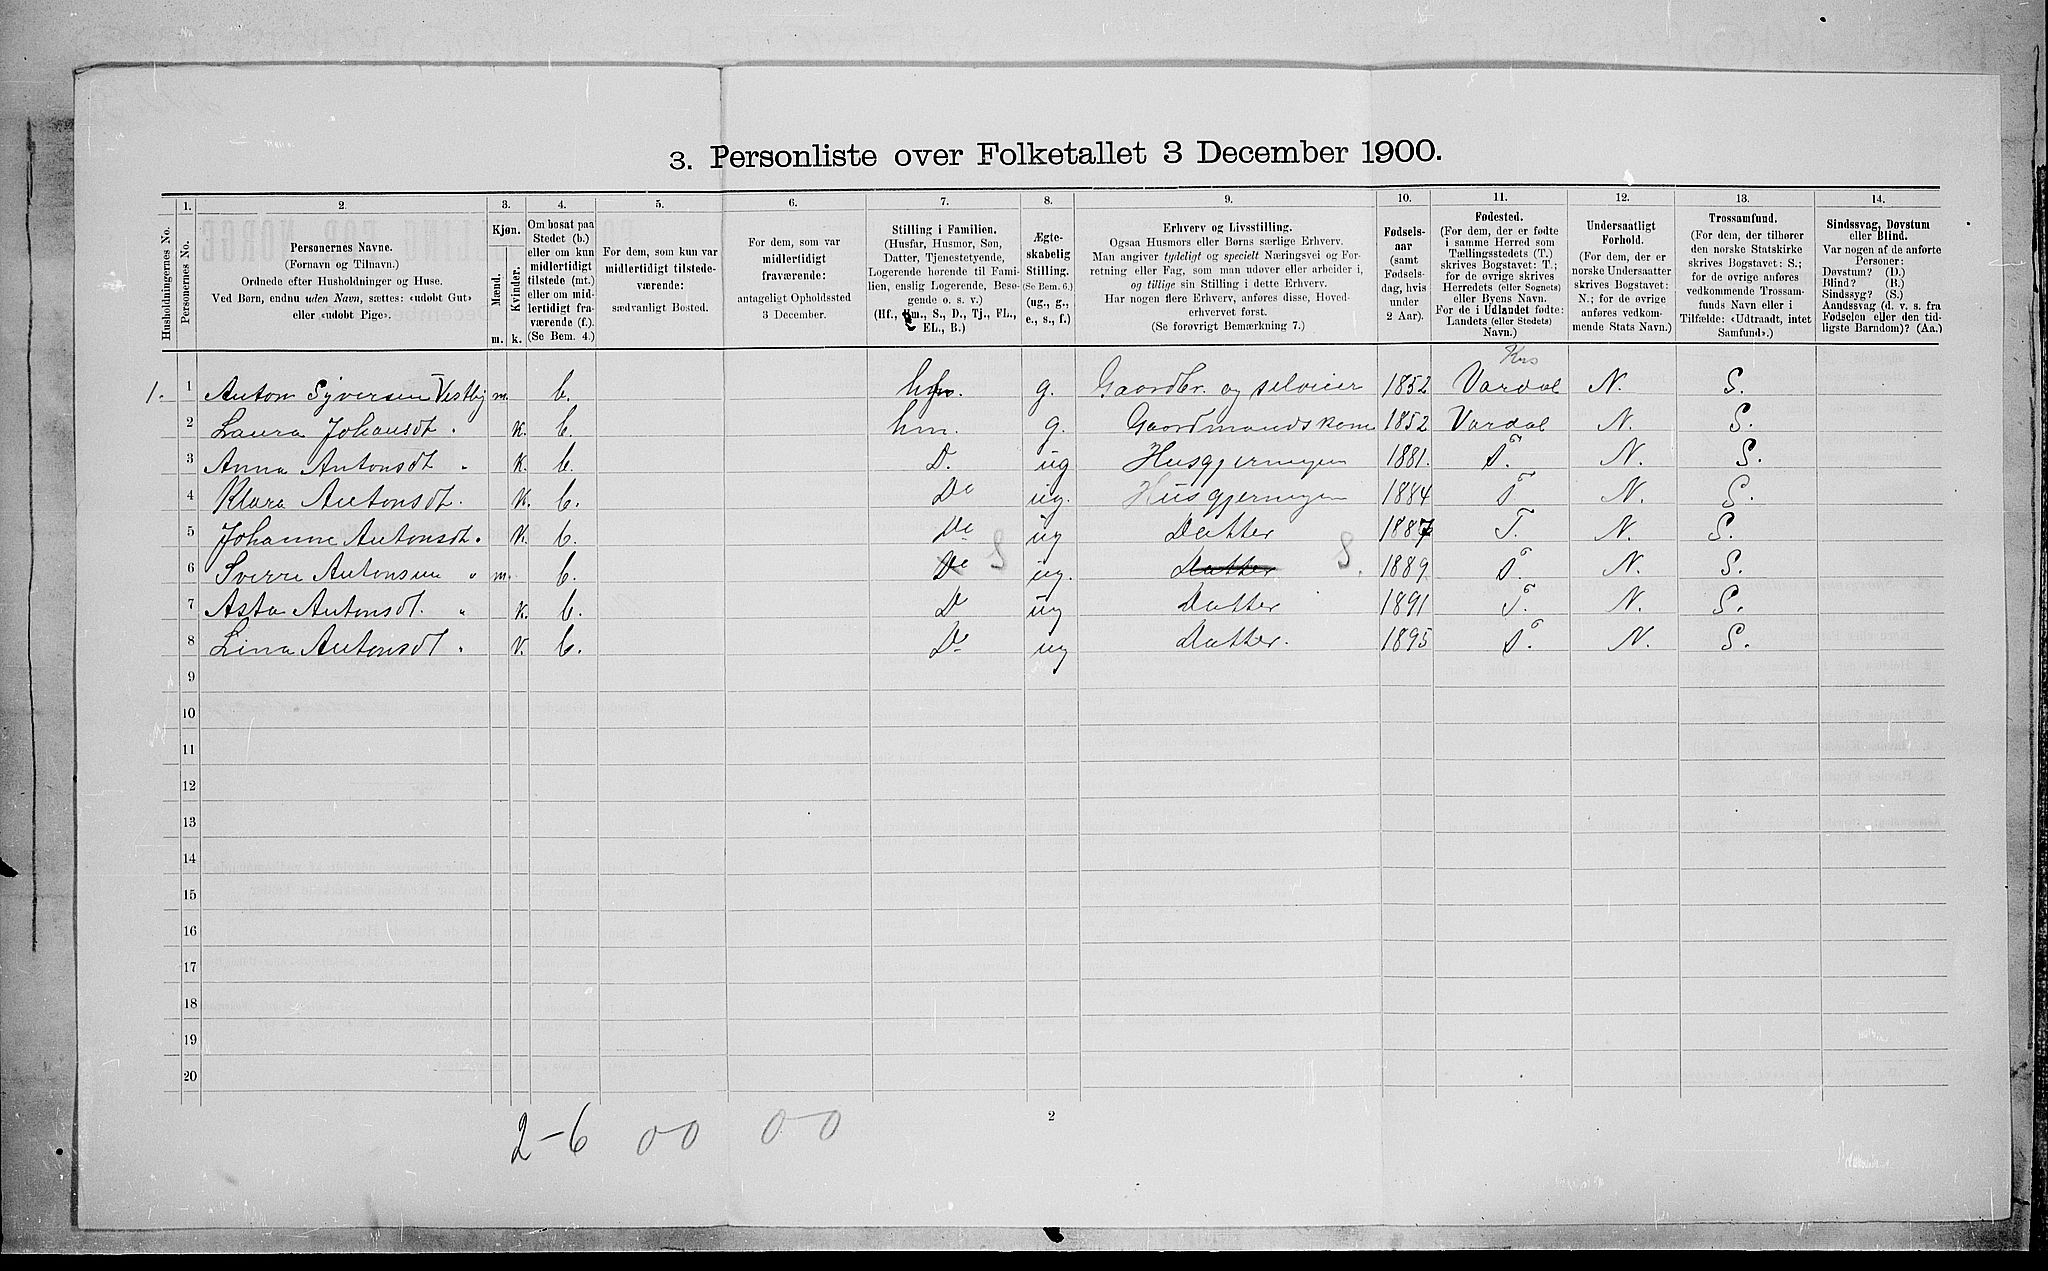 3. Personliste over Folketallet 3 December 1900.
1. 2. 3. 4. 5. 6. 7. 8. 9. 10. 11. 12. 13. 14.
Husholdningernes No.
Personernes No.
Personernes Navne.
(Fornavn og Tilnavn.)
Ordnede efter Husholdninger og Huse.
Ved Børn, endnu uden Navn, sættes: «udøbt Gut»
eller «udøbt Pige».
Kjøn.
Mænd.
Kvinder.
m. k.
Om bosat paa
Stedet (b.)
eller om kun
midlertidigt
tilstede (mt.)
eller om mid-
lertidigt fra-
værende (f.)
(Se Bem. 4.)
For dem, som kun var
midlertidigt tilstede-
værende:
sædvanligt Bosted.
For dem, som var
midlertidigt
fraværende:
antageligt Opholdssted
3 December.
Stilling i Familien.
(Husfar, Husmor, Søn,
Datter, Tjenestetyende,
Logerende hørende til Fami-
lien, enslig Logerende, Besø-
gende o. s. v.)
(Hf., Hm., S., D., Tj., FL.,
EL., B.)
Ægte-
skabelig
Stilling.
(Se Bem. 6.)
(ug., g.,
e., s., f.)
Erhverv og Livsstilling.
Ogsaa Husmors eller Børns særlige Erhverv.
Man angiver tydeligt og specielt Næringsvei og For-
retning eller Fag, som man udøver eller arbeider i,
og tillige sin Stilling i dette Erhverv.
Har nogen flere Erhverv, anføres disse, Hoved-
erhvervet først.
(Se forøvrigt Bemærkning 7.)
Fødsels-
aar
(samt
Fødsels-
dag, hvis
under
2 Aar).
Fødested.
(For dem, der er fødte
i samme Herred som
Tællingsstedets (T.)
skrives Bogstavet: T.;
for de øvrige skrives
Herredets (eller Sognets)
eller Byens Navn.
For de i Udlandet fødte:
Landets (eller Stedets)
Navn.)
Undersaatligt
Forhold.
(For dem, der er
norske Undersaatter
skrives Bogstavet:
N.; for de øvrige
anføres vedkom-
mende Stats Navn.)
Trossamfund.
(For dem, der tilhører
den norske Statskirke
skrives Bogstavet: S.;
for de øvrige anføres
vedkommende Trossam-
funds Navn eller i
Tilfælde: «Udtraadt, intet
Samfund».)
Sindssvag, Døvstum
eller Blind.
Var nogen af de anførte
Personer:
Døvstum? (D.)
Blind? (B.)
Sindssyg? (S.)
Aandssvag (d. v. s. fra
Fødselen eller den tid-
ligste Barndom)? (Aa.)
1. 1 Anton Syversen Vestby m. b. hf. g. Gaardbr. og selveier 1852 Vardal N. S.
2 Laura Johansdt. k. b. hm. g. Gaardmandskone 1852 Vardal N. S.
3 Anna Antonsdt. " k. b. D. ug Husgjerningen 1881. T. N. S.
4 Klara Antonsdt. k. b. Do ug. Husgjerningen 1884 T N. S.
5 Johanne Antonsdt. " k. b. Do ug Datter 1887 T. N. S.
6 Sverre Antonsen " m. b. Do S ug. Datter S. 1889. T. N. S.
7 Asta Antonsdt. " k. b. D ug Datter 1891 T. N. S.
8 Lina Antonsdt " k. b. D. ug Datter. 1895 T. N. S.
9
10
11
12
13
14
15
16
17
18
19
20
2-6 00 00
2